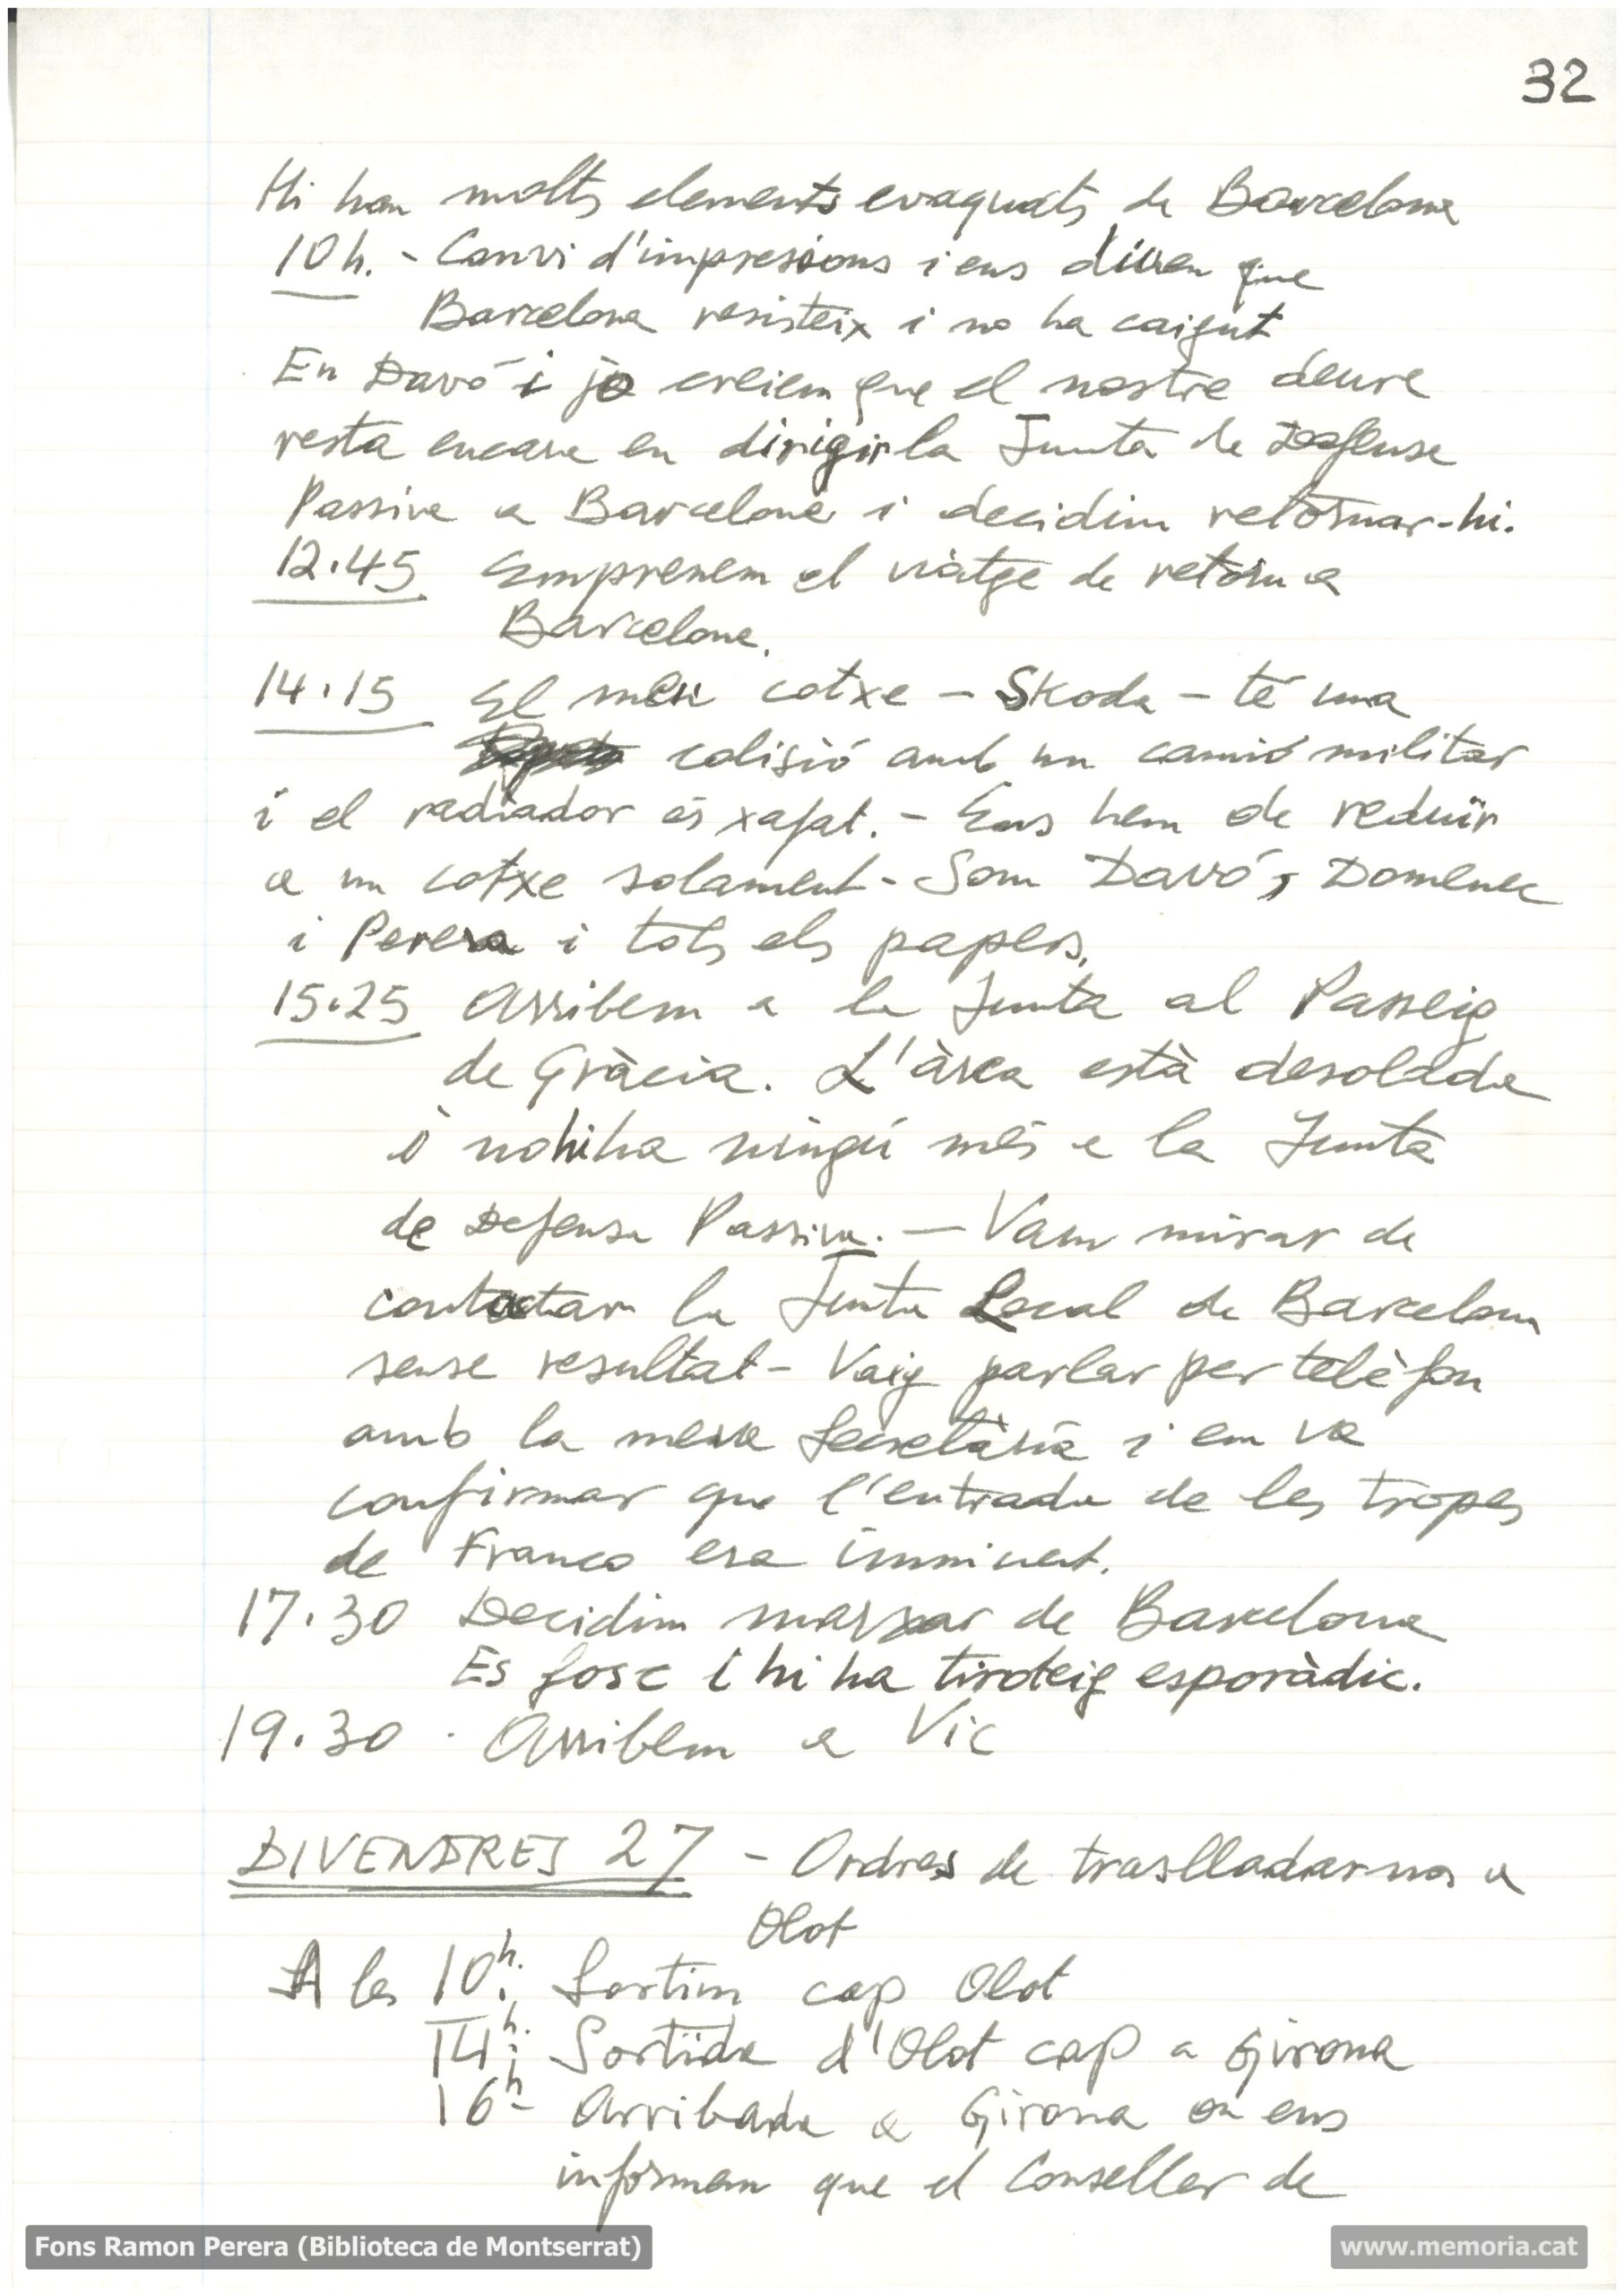 32
Hi han molts elements evaquats de Barcelona
10h. - Canvi d'impresions i ens diuen que
Barcelona resisteix i no ha caigut
En Davó i jo creiem que el nostre deure
resta encara en dirigir la Junta de Defensa
Passiva a Barcelona i decidim retornar-hi.
12.45 Emprenem el viàtge de retorn a
Barcelona.
14.15 El meu cotxe - Skoda - té una
colisió amb un camió militar
i el radiador és xafat. - Ens hem de reduïr
a un cotxe solament - Som Davó, Domenec
i Perera i tots els papers.
15.25 Arribem a la Junta al Passeig
de Gràcia. L'àrea està desolada
i no hi ha ningú més a la Junta
de Defensa Passiva. - Vam mirar de
contactar la Junta Local de Barcelona
sense resultat - Vaig parlar per telèfon
amb la meva Secretària i em va
confirmar que l'entrada de les tropes
de Franco era imminent.
17.30 Decidim marxar de Barcelona
Es fosc i hi ha tiroteig esporàdic.
19.30 . Arribem a Vic
DIVENDRES 27 - Ordres de traslladarnos a
Olot
A les 10h. Sortim cap Olot
14h. Sortida d'Olot cap a Girona
16h - Arribada a Girona on ens
informen que el Conseller de
Fons Ramon Perera (Biblioteca de Montserrat)
www.memoria.cat